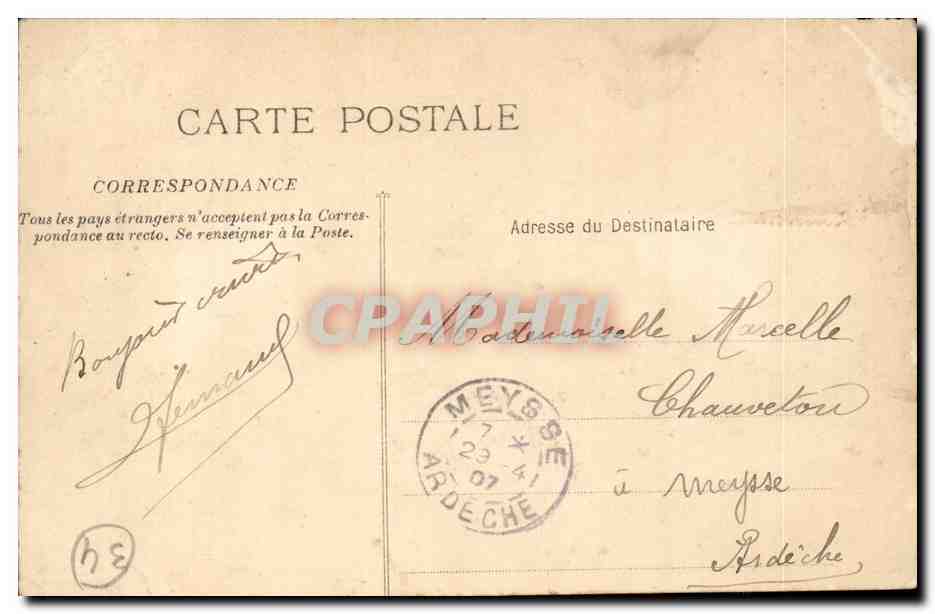 CARTE POSTALE
CORRESPONDANCE
Tous les pays étrangers n'acceptent pas la Corres-
pondance au recto. Se renseigner à la Poste.
Bonjour
Adresse du Destinataire
Mademoiselle Marcelle
Chauveton
à Meysse
Ardèche
MEYSSE
7 *
29 - 4
07
ARDECHE
34
CPAPHIL